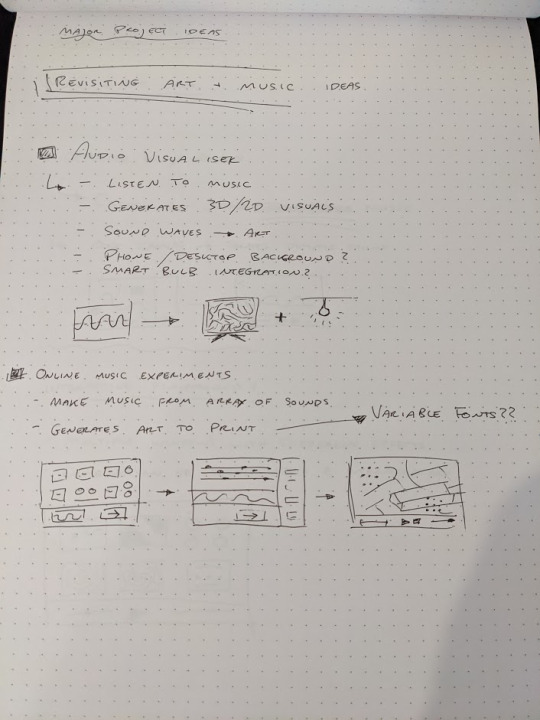 MAJOR PROJECT IDEAS
REVISITING ART + MUSIC IDEAS
AUDIO VISUALISER
- LISTEN TO MUSIC
- GENERATES 3D/2D VISUALS
- SOUND WAVES → ART
- PHONE/DESKTOP BACKGROUND?
- SMART BULB INTEGRATION?
+
ONLINE MUSIC EXPERIMENTS
- MAKE MUSIC FROM ARRAY OF SOUNDS
- GENERATES ART TO PRINT → VARIABLE FONTS??